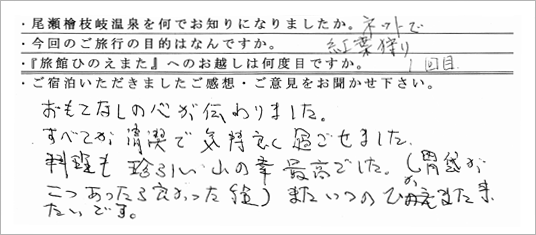 ・尾瀬檜枝岐温泉を何でお知りになりましたか。ネットで
・今回のご旅行の目的はなんですか。紅葉狩り
・『旅館ひのえまた』へのお越しは何度目ですか。1回目
・ご宿泊いただきましたご感想・ご意見をお聞かせ下さい。
おもてなしの心が伝わりました。
すべてが清潔で気持良く過ごせました。
料理も珍らしい山の幸最高でした。(胃袋が
二つあったら良かった
たいです。